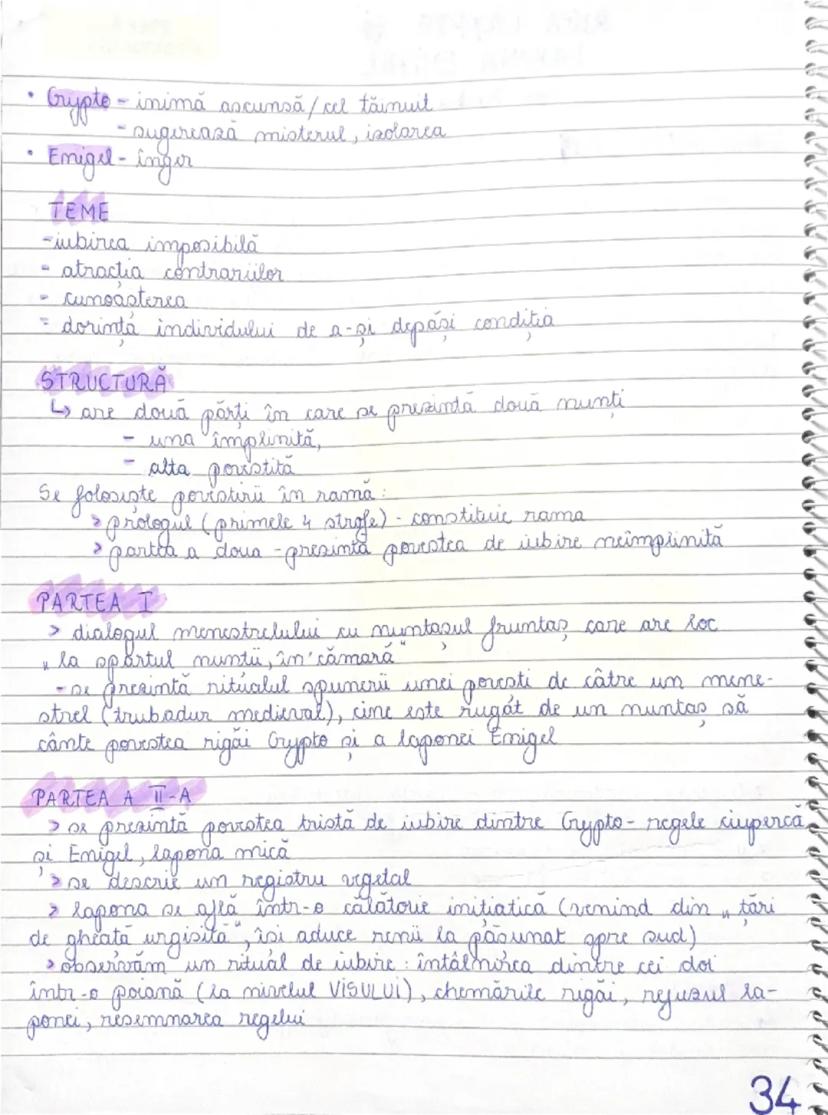 • Crypto - inimă ascunsă/cel tăinuit
- sugerează misterul, izolarea
• Enigel - înger
TEME
- iubirea imposibilă
- atracția contrariilor
- cunoașterea
- dorința individului de a-și depăși condiția
STRUCTURĂ
↳ are două părți în care se prezintă două nunți
- una împlinită,
- alta povestită
Se folosește povestirii în ramă:
> prologul (primele 4 strofe) - constituie rama
> partea a doua - prezintă povestea de iubire neîmplinită
PARTEA I
> dialogul menestrelului cu nuntașul fruntaș care are loc
„la spartul nunții, în cămară"
- se prezintă ritualul spunerii unei povești de către un mene-
strel (trubadur medieval), cine este rugat de un nuntaș să
cânte povestea rigăi Crypto și a laponei Enigel
PARTEA A II-A
> se prezintă povestea tristă de iubire dintre Crypto - regele ciupercă
și Enigel, lapona mică
> se descrie un registru vegetal
> lapona se află într-o călătorie inițiatică (venind din „țări
de gheață urgisită", își aduce renii la pășunat spre sud)
> observăm un ritual de iubire: întâlnirea dintre cei doi
într-o poiană (la nivelul VISULUI), chemările rigăi, refuzul la-
ponei, resemnarea regelui
34